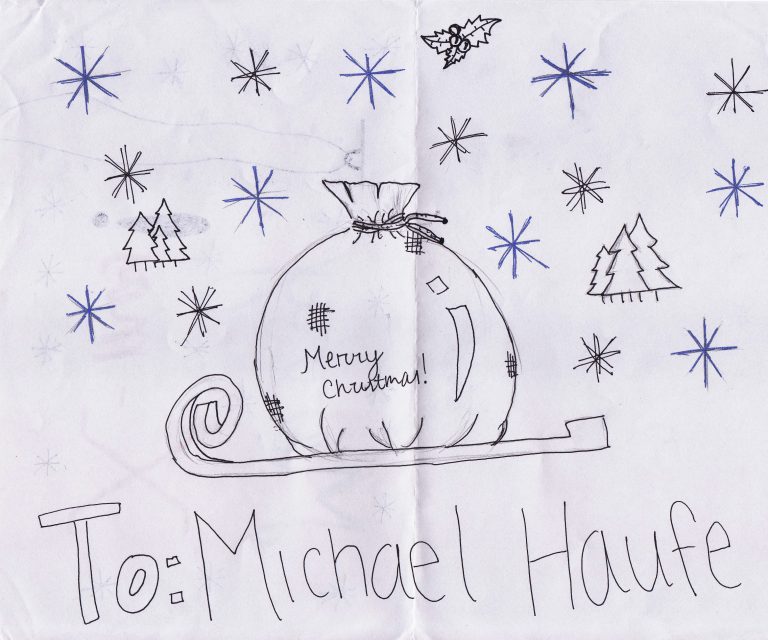 Merry
Christmas!
To: Michael Haufe